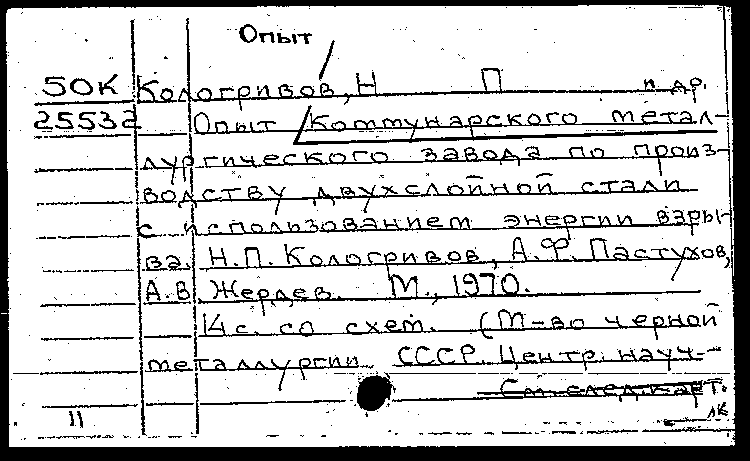 Опыт
50К Кологривов, Н П и др.
25532 Опыт Коммунарского метал-
лургического завода по произ-
водству двухслойной стали
с использованием энергии взры-
ва. Н.П. Кологривов, А.Ф. Пастухов,
А.В. Жердев. М., 1970.
14 с. со схем. (М-во черной
металлургии СССР. Центр. науч.-
См. след. карт.
11 лк